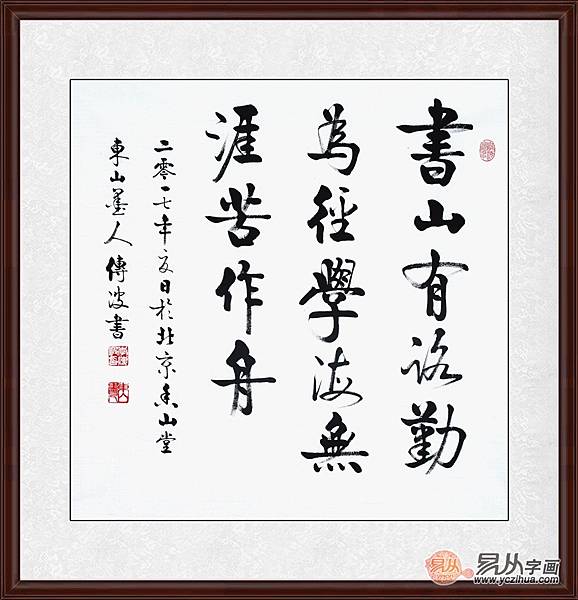 書山有路勤
為徑學海無
涯苦作舟
二零一七年夏日於北京東山堂
東山墨人傳波書
易从字画
www.yczihua.com